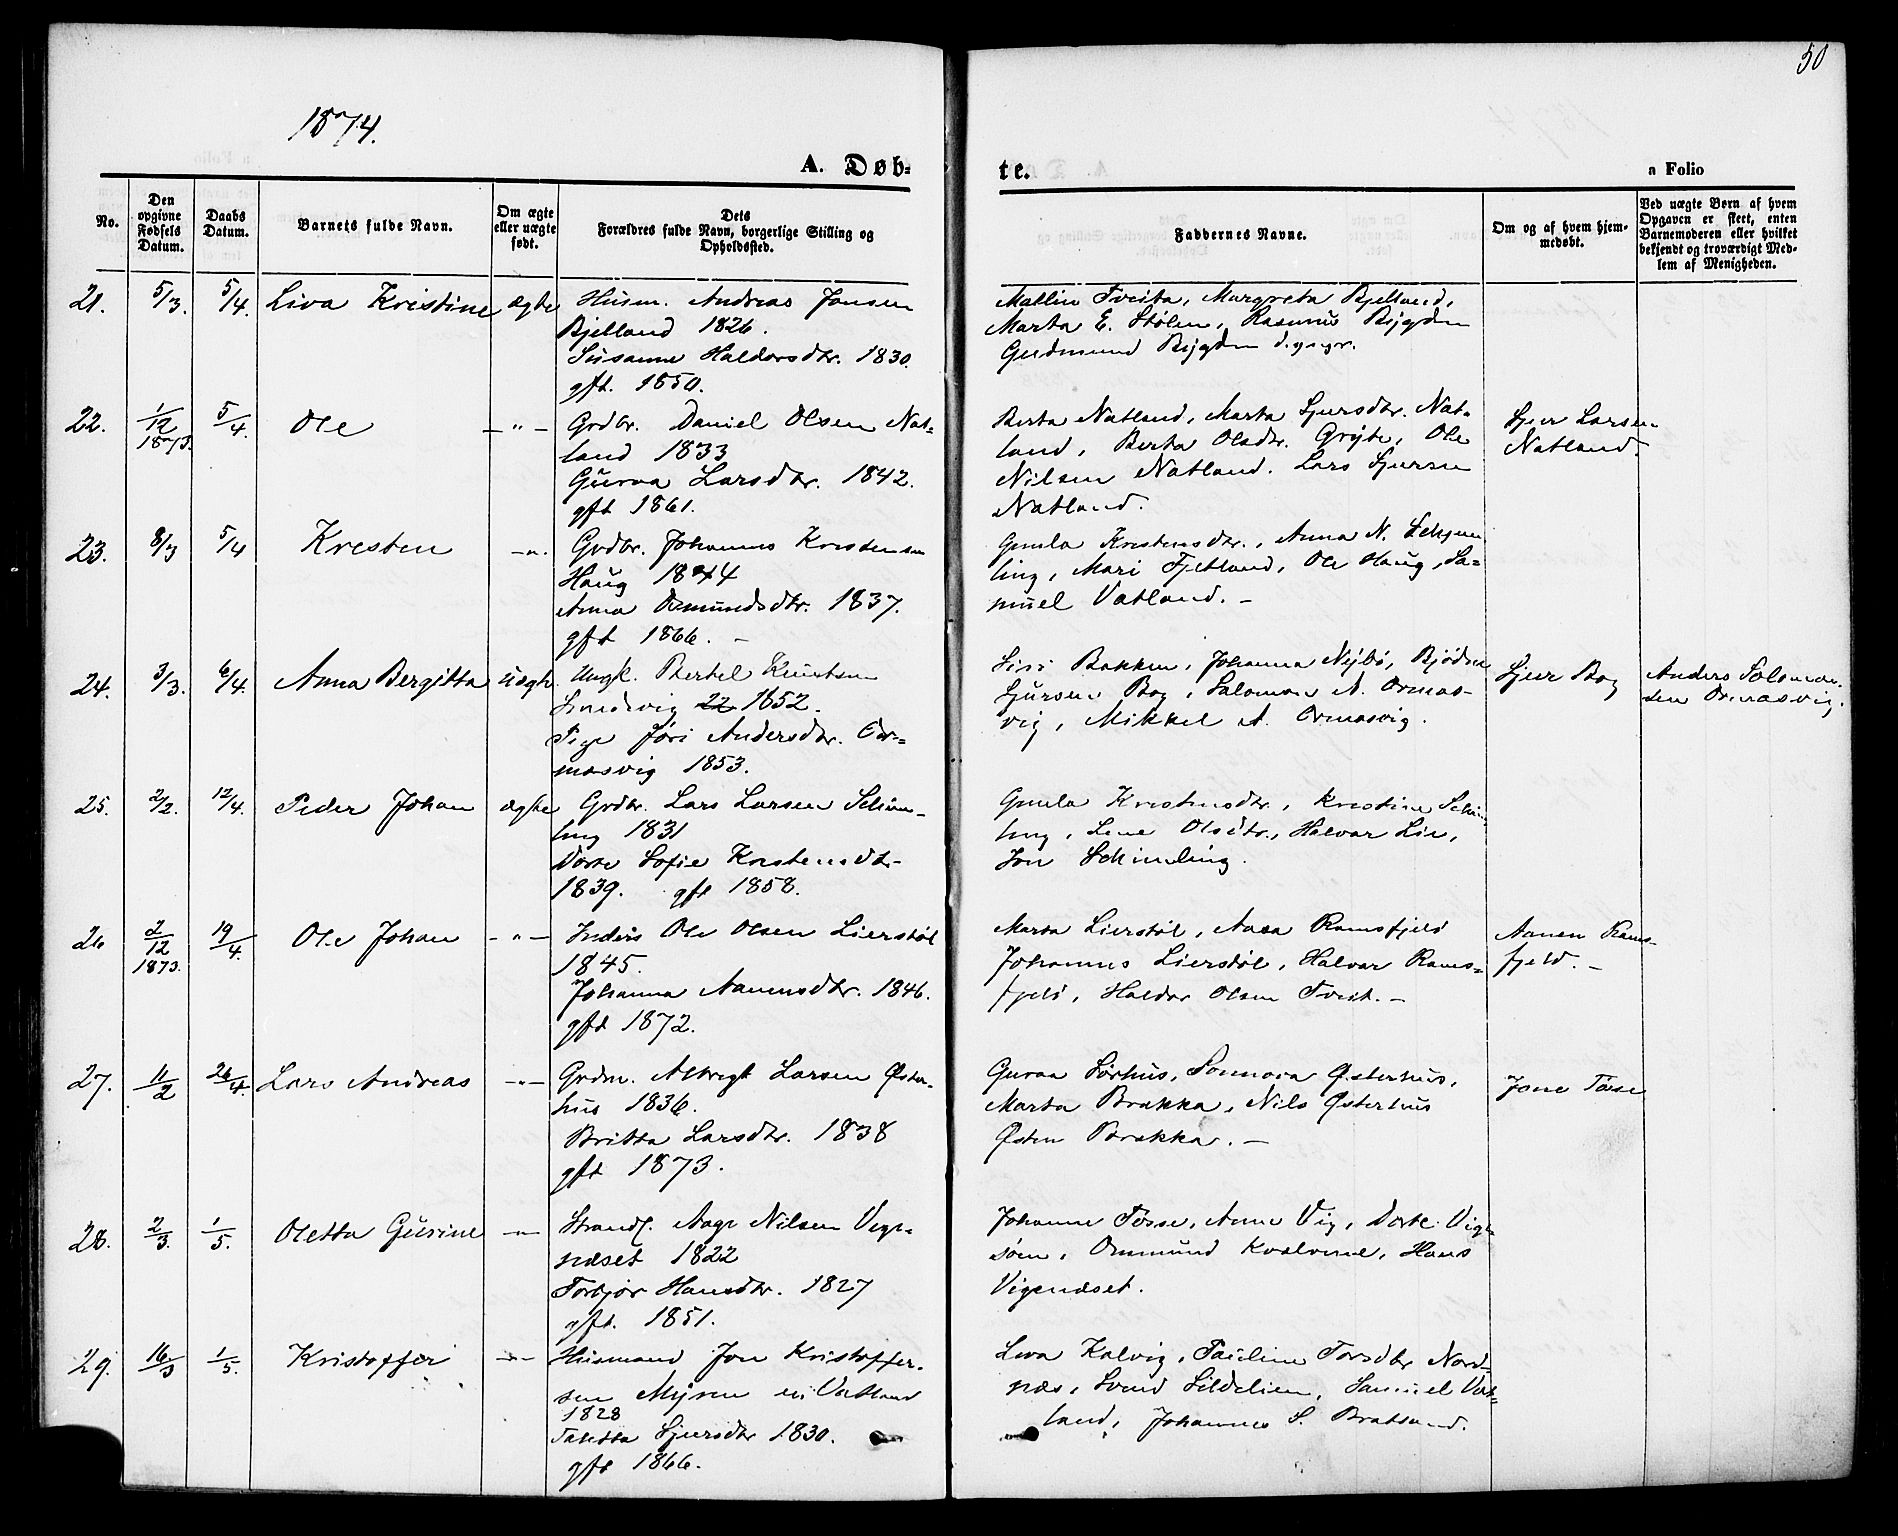 50
1874.
A. Døb=
te.
a Folio
No.
Den opgivne Fødsels Datum.
Daabs Datum.
Barnets fulde Navn.
Om ægte eller uægte født.
Dets Forældres fulde Navn, borgerlige Stilling og Opholdssted.
Faddernes Navne.
Om og af hvem hjemmedøbt.
Ved uægte Børn af hvem Opgaven er skeet, enten Barnemoderen eller hvilket bekjendt og troværdigt Medlem af Menigheden.
21. 5/3. 5/4. Liva Kristine ægte Husm. Andreas Jonsen
Bjelland 1826.
Susanne Haldorsdtr. 1830.
gft. 1850.
Mallin Tveita, Margreta Bjelland,
Marta E. Stølen, Rasmus Bygden
Gudmund Bygden
22. 1/12 1873. 5/4. Ole — " — Grdbr. Daniel Olsen Nat-
land 1833
Guroa Larsdtr. 1842.
gft 1861.
Berta Natland, Marta Sjursdtr. Nat-
land, Berta Olsdtr. Gryte, Ole
Nilsen Natland. Lars Sjursen
Natland.
Sjur Larsen
Natland.
23. 8/3 5/4 Kresten — " — Grdbr. Johannes Kristensen
Haug 1844
Anna Osmundsdtr. 1837.
gft 1866. —
Gunla Kristensdtr., Anna N.
ling, Mari Fjetland, Ole Haug, Sa-
muel Vatland. —
24. 3/3. 6/4. Anna Bergitta uægte Ungk. Bertel Knutsen
Sandvig 22 1852.
Pige Jøri Andersdtr. Or-
masvig 1853.
Siri Bakken, Johanna Nybø,
Sjursen Bog, Salomon A. Ormas-
vig, Mikkel A. Ormasvig.
Sjur Bog
Anders Salomon-
sen Ormasvig.
25. 2/2. 12/4. Peder Johan ægte Grdbr. Lars Larsen Schim-
ling 1831
Dorte Sofie Kristensdtr
1839. gft 1858.
Gunla Kristensdtr., Kristine Schim
ling, Lene Olsdtr., Halvar Lie,
Jon Schimling.
26 2/12 1873. 19/4. Ole Johan — " — Inders Ole Olsen Lierstøl
1845.
Johanna Aanensdtr. 1846.
gft 1872.
Marta Lierstøl, Aasa Ramsfjeld
Johannes Lierstøl, Halvar Rams-
fjeld, Haldor Olsen Tveit. —
Aanen Rams-
fjeld. —
27. 11/2 26/4. Lars Andreas — " — Grdm. Albregt Larsen Øster-
hus 1836.
Britta Larsdtr. 1838
gft 1873.
Guroa Sørhus, Sonnova Østerhus,
Marta Brekka, Nils Østerhus
Østen Brekka. —
Jone Tøsse
28. 2/3. 1/5. Oletta Gurine — " — Strands. Aage Nilsen Vige-
næset 1822
Torbjør Hansdtr. 1827
gft. 1851.
Johanne Tøsse, Anne Vig, Dorte Vige-
søen, Ommund Kvalvene, Hans
Vigenæset.
29. 16/3 1/5. Kristoffer — " — Husmand Jon Kristoffer-
sen Myren u. Vatland
1828
Taletta Sjursdtr 1830.
gft 1866.
Liva Kalvig, Pauline Torsdtr Nord-
næs, Svend Sildelien, Samuel Vat-
land, Johannes S. Bratsand.